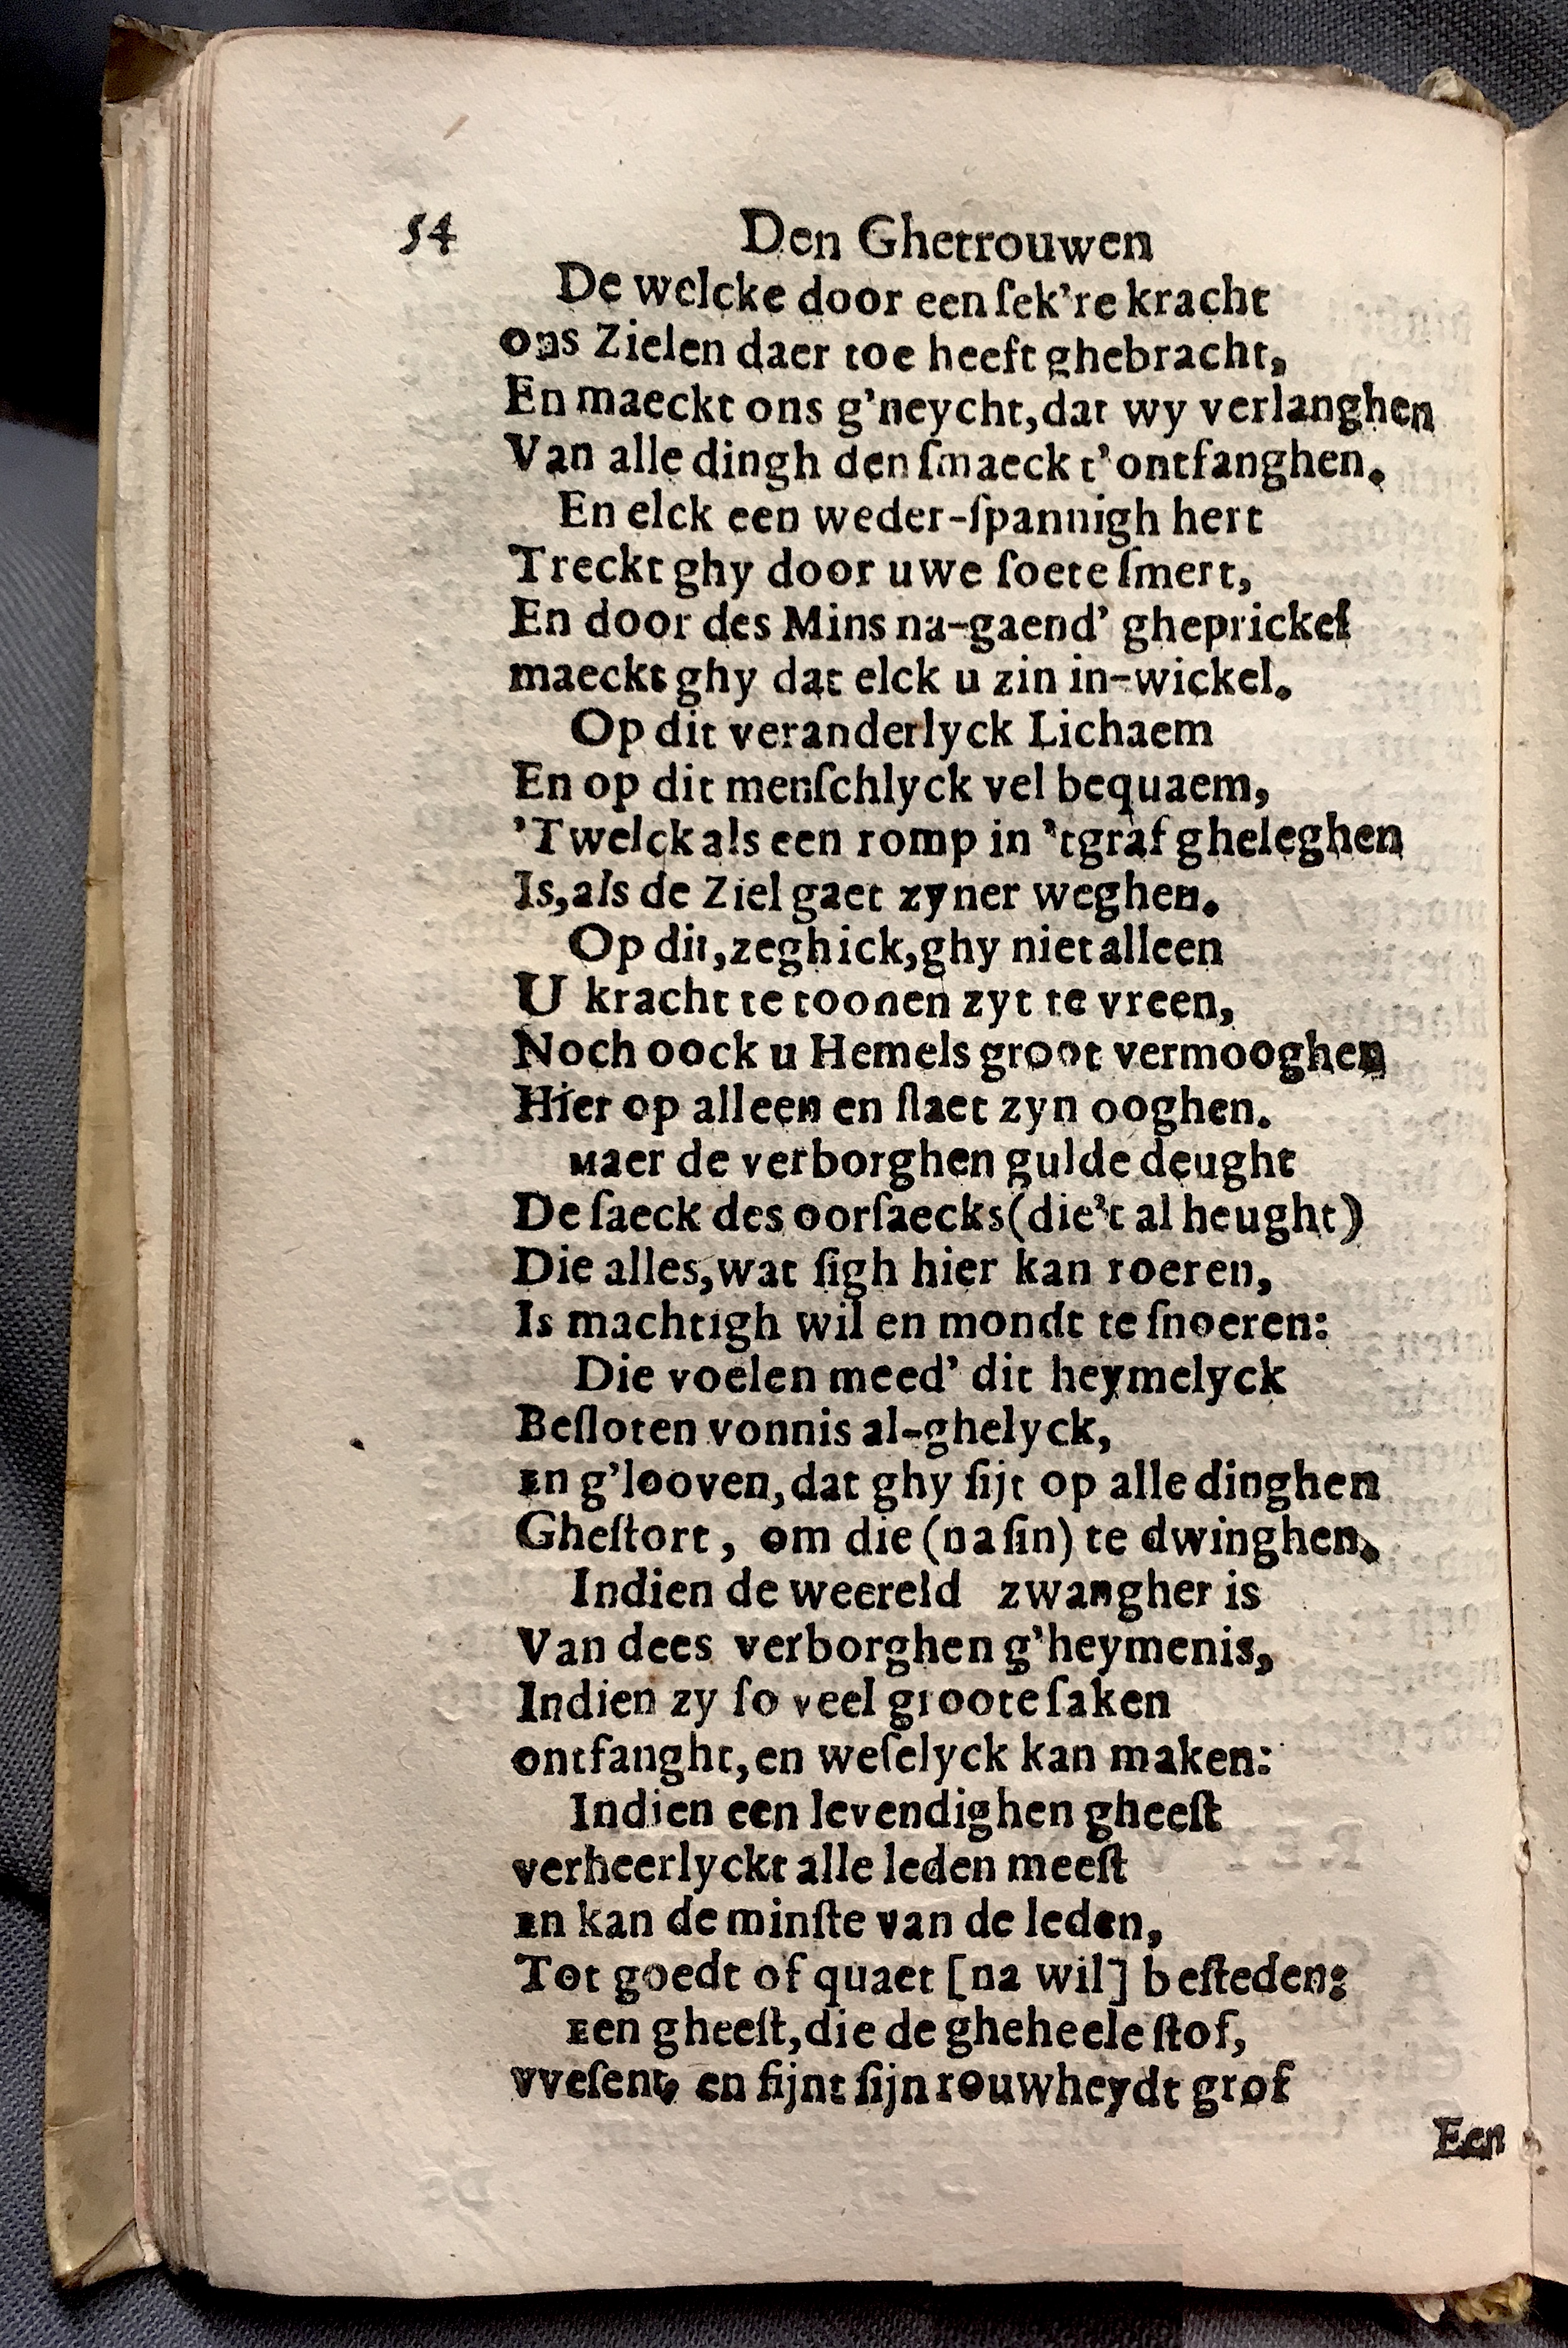 54 Den Ghetrouwen
De welcke door een ſek're kracht
ons Zielen daer toe heeft ghebracht,
En maeckt ons g'neycht, dat wy verlanghen
Van alle dingh den ſmaeck t'ontfanghen.
En elck een weder-ſpannigh hert
Treckt ghy door uwe ſoete ſmert,
En door des Mins na-gaend' gheprickel
maeckt ghy dat elck u zin in-wickel.
Op dit veranderlyck Lichaem
En op dit menſchlyck vel bequaem,
'Twelck als een romp in 'tgraf gheleghen
Is, als de Ziel gaet zyner weghen.
Op dit, zegh ick, ghy niet alleen
U kracht te toonen zyt te vreen,
Noch oock u Hemels groot vermooghen
Hier op alleen en ſlaet zyn ooghen.
Maer de verborghen gulde deught
De ſaeck des oorſaecks (die't al heught)
Die alles, wat ſigh hier kan roeren,
Is machtigh wil en mondt te ſnoeren:
Die voelen meed' dit heymelyck
Beſloten vonnis al-ghelyck,
En g'looven, dat ghy ſijt op alle dinghen
Gheſtort, om die (na ſin) te dwinghen.
Indien de weereld zwangher is
Van dees verborghen g'heymenis,
Indien zy ſo veel groote ſaken
ontfanght, en weſelyck kan maken:
Indien een levendighen gheeſt
verheerlyckt alle leden meeſt
En kan de minſte van de leden,
Tot goedt of quaet [na wil] beſteden:
Een gheeſt, die de gheheele ſtof,
vveſent, en fijnt ſijn rouwheydt grof
Een